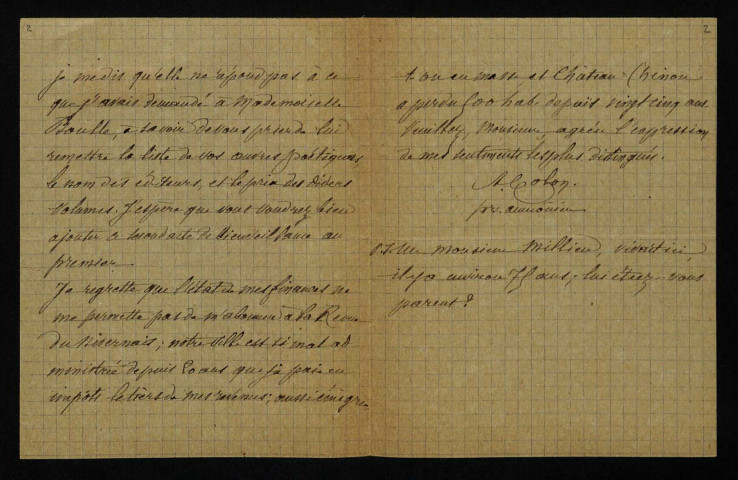 2
je me dis qu'elle ne répond pas à ce
que j'avais demandé à Mademoiselle
Boulle, à savoir de vous prier de lui
remettre la liste de vos œuvres poétiques,
le nom des éditeurs, et le prix des divers
volumes. J'espère que vous voudrez bien
ajouter ce second acte de bienveillance au
premier.
Je regrette que l'état de mes finances ne
me permette pas de m'abonner à la Revue
du Nivernais; notre ville est si mal ad
ministrée depuis 20 ans que je paie en
impôts le tiers de mes revenus; aussi émigre
2
t on en masse et Château-Chinon
a perdu 500 hab. depuis vingt cinq ans.
Veuillez, Monsieur, agréer l'expression
de mes sentiments les plus distingués.
A. Colon.
P.S. Un monsieur Millien, vivait ici,
il y a environ 75 ans; lui étiez-vous
parent?